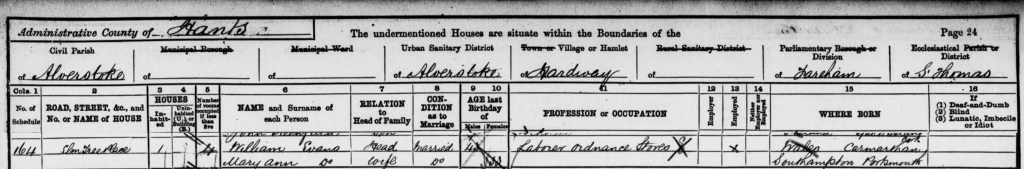 Administrative County of Hants The undermentioned Houses are situate within the Boundaries of the Page 24
Civil Parish Municipal Borough Municipal Ward Urban Sanitary District Town or Village or Hamlet Rural Sanitary District Parliamentary Borough or Division Ecclesiastical Parish or District
of Alverstoke of of of Alverstoke of Hardway of of Fareham of St Thomas
Cols. 1 2 3 4 5 6 7 8 9 10 11 12 13 14 15 16
No. of Schedule ROAD, STREET, &c., and No. or NAME of HOUSE HOUSES Inhabited Uninhabited (U.) or Building (B.) Number of rooms occupied if less than five NAME and Surname of each Person RELATION to Head of Family CONDITION as to Marriage AGE last Birthday of Males Females PROFESSION or OCCUPATION Employer Employed Neither Employer nor Employed WHERE BORN If (1) Deaf-and-Dumb (2) Blind (3) Lunatic, Imbecile or Idiot
164 Elmtree Place 1 4 William Evans Head Married Laborer ordnance Stores X Wales Carmarthan
Mary Ann Do Wife Do Southampton Portsmouth